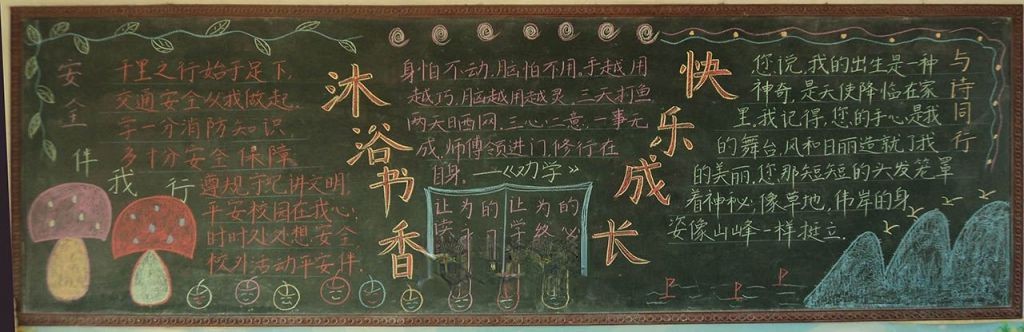 安全伴我行
千里之行始于足下,
交通安全以我做起。
学一分消防知识,
多十分安全保障。
遵规守纪讲文明,
平安校园在我心;
时时处处想安全
校外活动平安伴.
沐浴书香
身怕不动,脑怕不用。手越用
越巧,脑越用越灵。三天打鱼
两天晒网,三心二意,一事无
成。师傅领进门,修行在
自身。——《力学》
让 为的
读
让 为的
学
快乐成长
您说,我的出生是一种
神奇,是天使降临在家
里。我记得,您的手心是我
的舞台,风和日丽造就了我
的美丽,您那短短的头发笼罩
着神秘;像草地,伟岸的身
姿像山峰一样挺立.
与诗同行